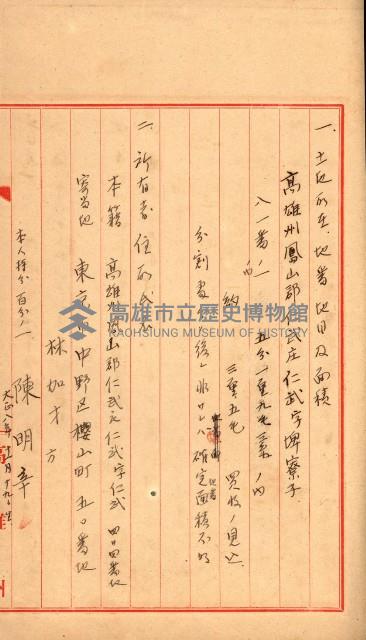 一、土地所在、地番地目及面積
高雄州鳳山郡仁武庄仁武字埤寮子
八一番ノ一
内 五分一厘九毛二糸ノ内
約 三厘五毛 買收ノ見込
分割 後 確定面積不明
二、所有者住所氏名
本籍 高雄州鳳山郡仁武庄仁武字仁武四四番地
寄留地 東京市中野区櫻山町五〇番地
林如才方
本人持分百分ノ一 陳明辛
大正八年十一月十九日生
高雄市立歷史博物館
KAOHSIUNG MUSEUM OF HISTORY
高雄州